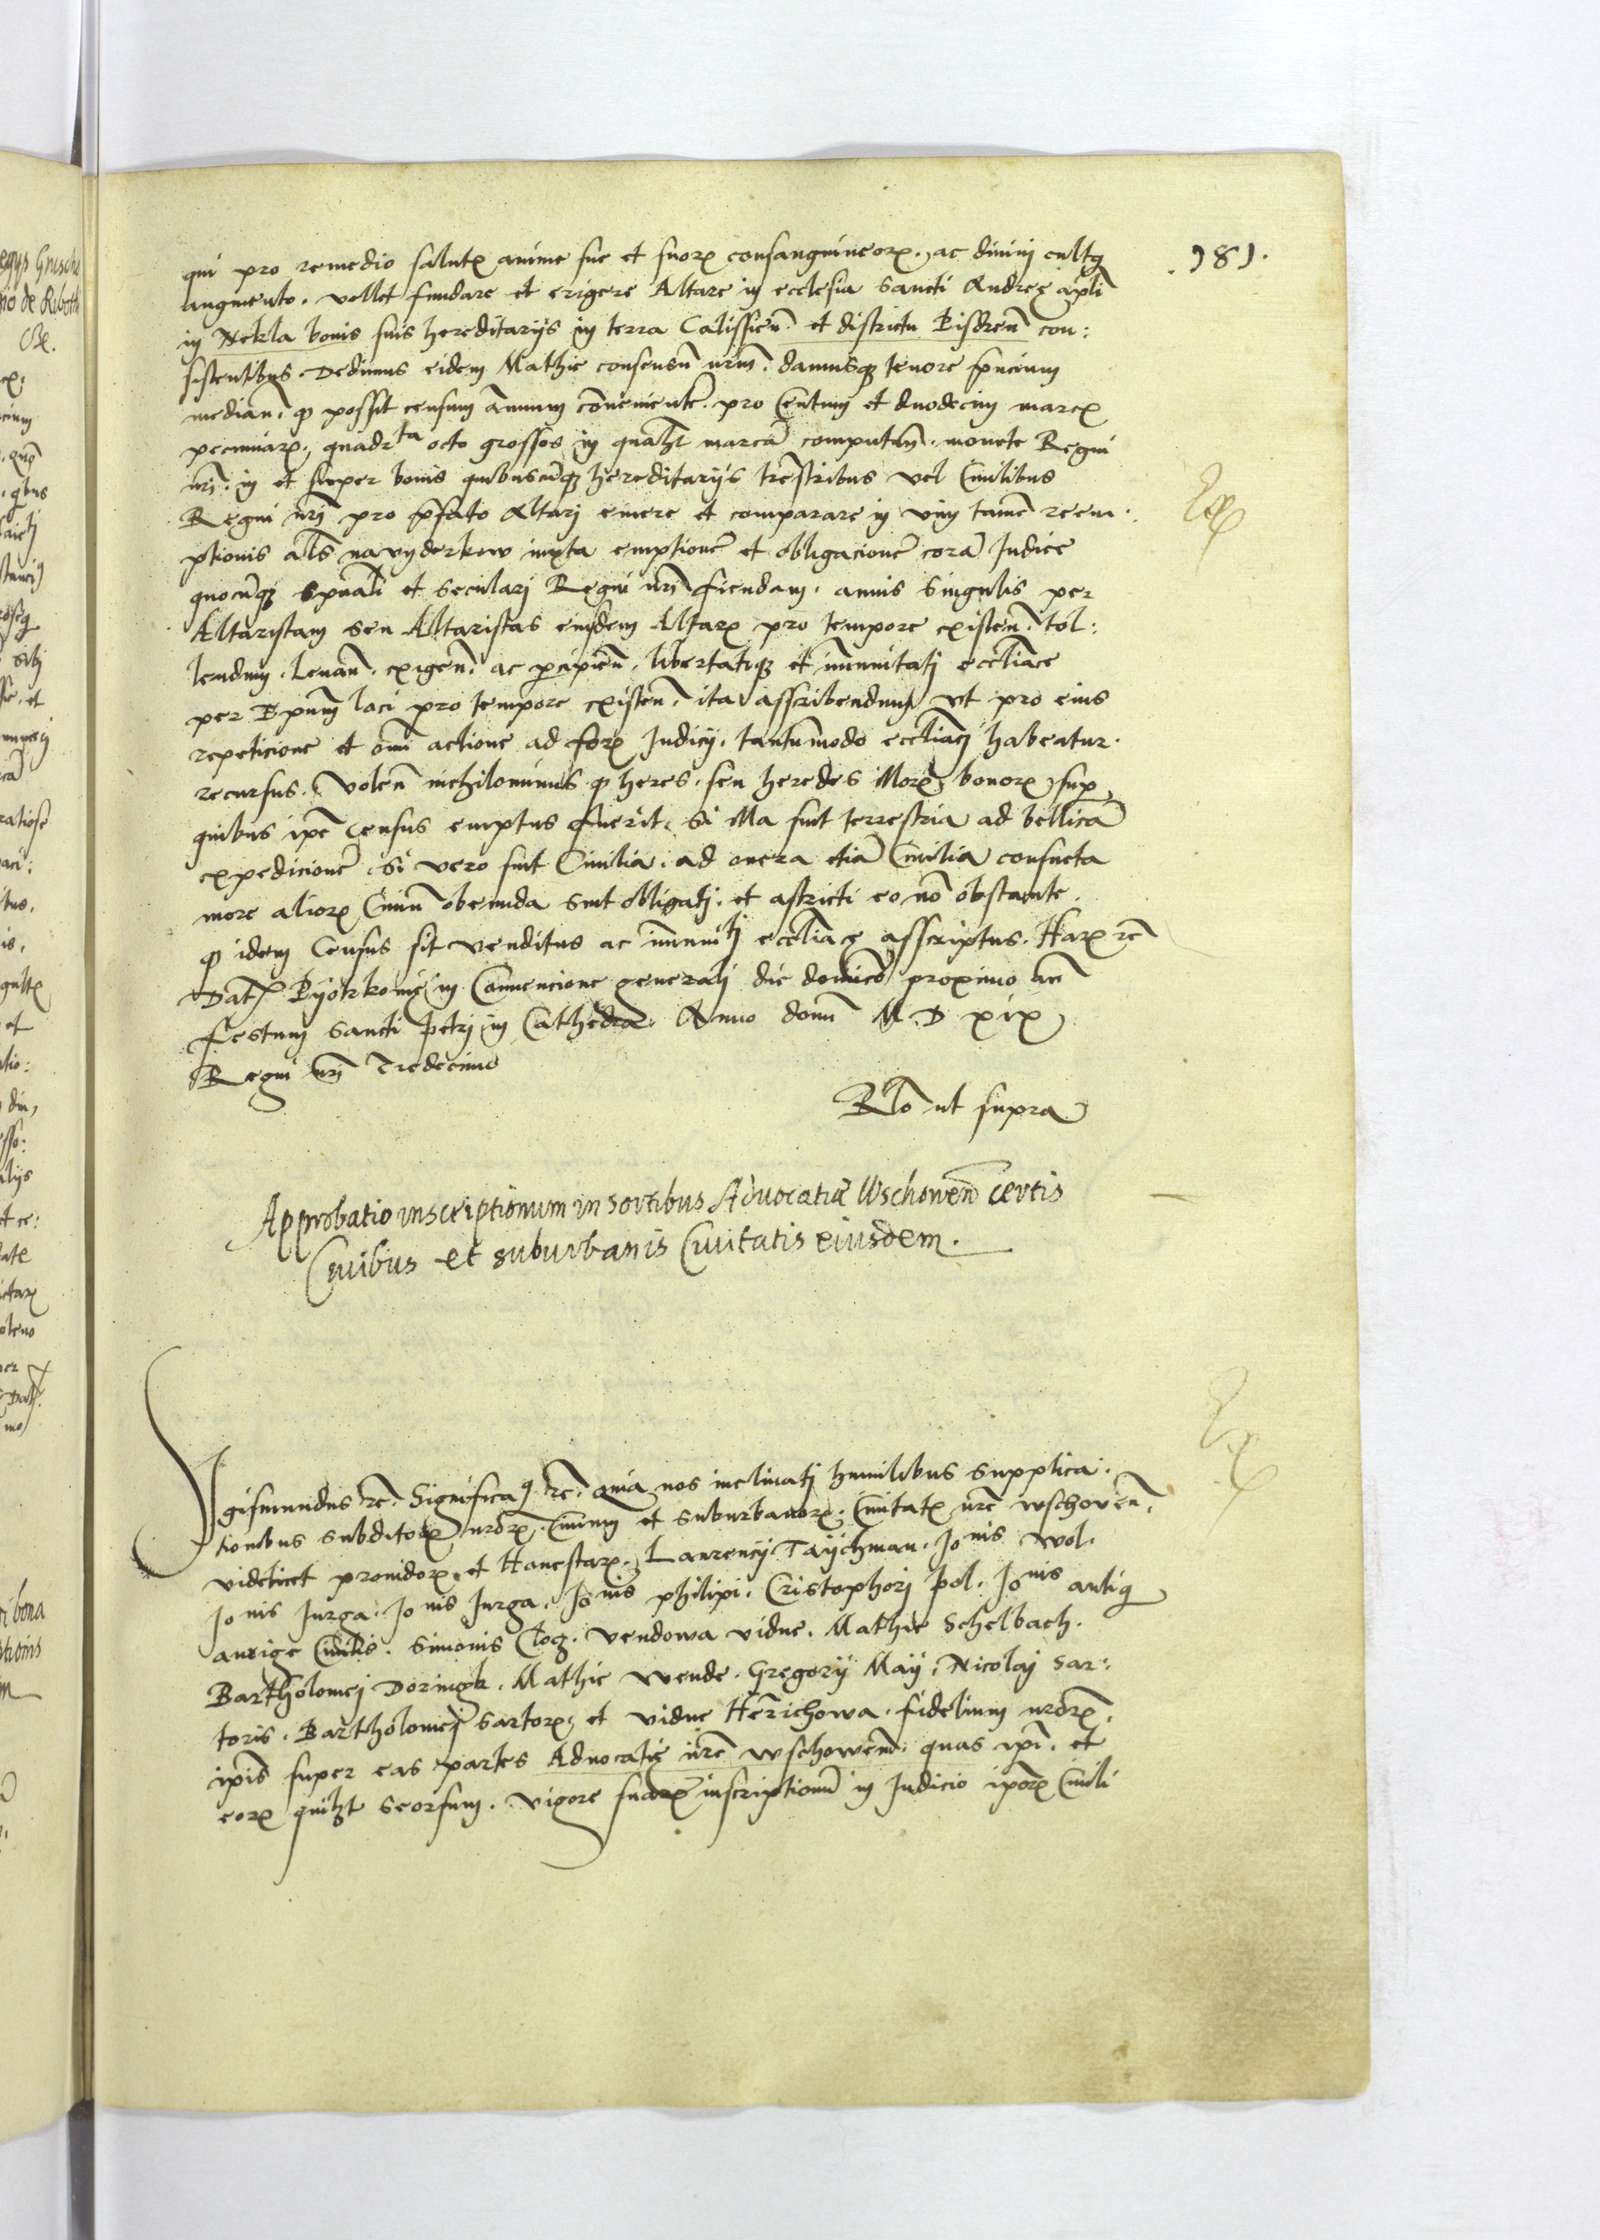 181.
qui pro remedio salutꝫ anime sue et suorꝫ consanguineorꝫ, ac divini cultꝫ
augmento. vellet fundare et erigere Altare in ecclesia Sancti Andreę apli
in Nekla bonis suis hereditarijs in terra Calissien. et districtu Pisdren con:
sistentibus. Dedimus eidem Mathie consensu nrm. damusqꝫ tenore pncium
median. ꝙ possit censum annuum convenienter. pro Centum et duodecim marcꝫ
pecuniarꝫ, quadrta octo grossos in qualzt marca computan. monete Regni
nri. in et super bonis quibuscuqꝫ hereditarijs trestribus vel Civilibus
Regni nri pro pfato Altarj emere et comparare in vim tame reem:
ptionis als na vyderkow iuxta emptione et obligacione cora Iudice
quocuqꝫ Spuali et Secularj Regni nri fiendam. annis Singulis per
Altaristam Seu Altaristas eiusdem Altarꝫ pro tempore existen. tol:
lendum. Levan. exigen. ac pcipien. libertatiqꝫ et immunitatj eccliace
per Epum loci pro tempore existen. ita asscribendum ut pro eius
repeticione et omi actione ad forꝫ Iudicij. tantumodo eccliacj habeatur.
recursus. Volen nichilominus ꝙ heres. seu heredes illorꝫ, bonorꝫ sup
quibus ipe Census emptus fuerit. Si illa sint terrestria ad bellica
expedicione. Si vero sint Civilia. ad onera etia Civilia consueta
more aliorꝫ Civiu obeunda sint obligatj. et astricti eo no obstante.
ꝙ idem Census sit venditus ac immuitj eccliacę asscriptus. Harꝫ rc
Datꝫ Pyotrkowie in Convencione generalj die dominico proximo an
festum Sancti Petrj in Cathedra. Anno domi M D xix
Regni nri Tredecimo
Rlo ut supra
Approbatio inscriptionum in sortibus Advocatiæ Wschowen certis
Civibus et suburbanis Civitatis eiusdem.
gismundus rc. Significaꝯ rc. quia nos inclinatj humilibus supplica:
tionibus subditorꝫ nrorꝫ. Civium et suburbanorꝫ. Civitatꝫ nre wschoven.
videlicet providorꝫ et Honestarꝫ, Laurencij Taychman. Jo nis Wol.
Jo nis Jurga. Jo nis Jurga. Jo nis philipi. Cristophorj Pol. Jo nis antiq
aurige Civilis. Simonis Clocz. Vendowa vidue. Mathie Schelbach.
Bartholomej Dornigk. Mathie Wende. Gregorij May. Nicolaj Sar:
toris. Bartholomej Sartorꝫ, et vidue Henrichowa. fidelium nrorꝫ.
ipis super eas partes Advocatię nre wschowen. quas ipi. et
eorꝫ quilzt Seorsum. vigore suarꝫ inscriptionu in Iudicio iporꝫ Civili